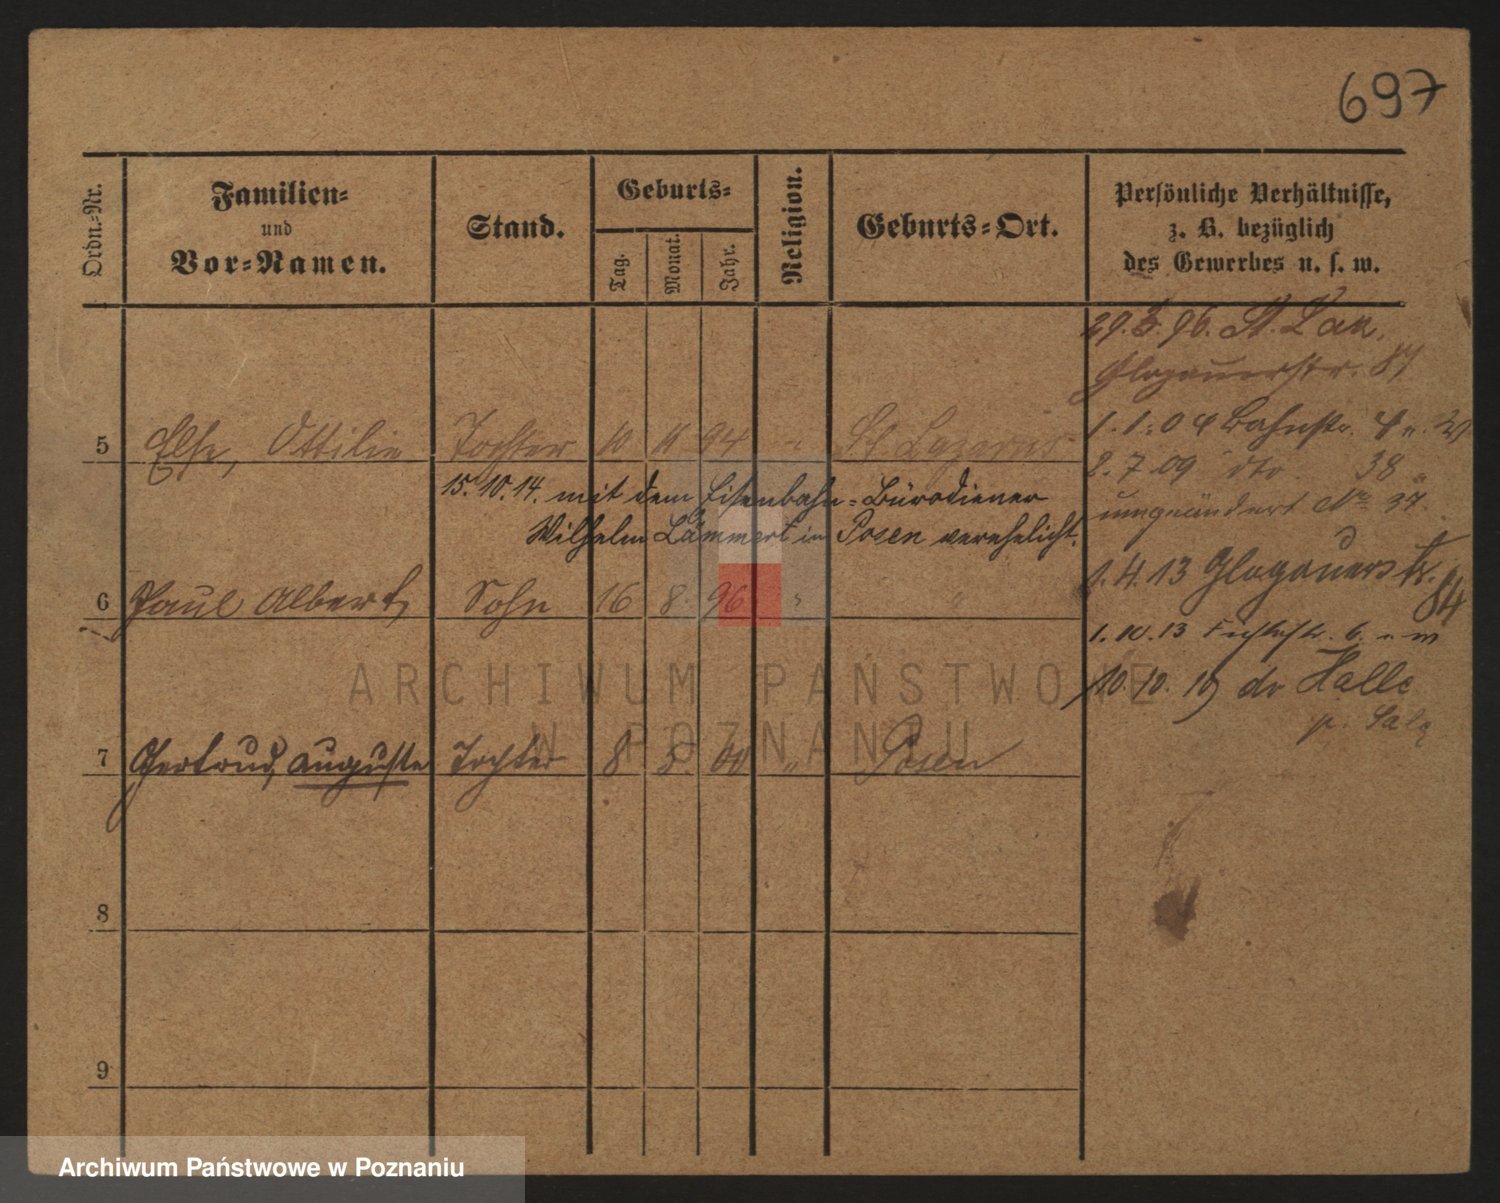 697
Ordn.-Nr.
Familien-
und
Vor-Namen.
Stand.
Geburts-
Tag.
Monat.
Jahr.
Religion.
Geburts-Ort.
Persönliche Verhältnisse,
z. B. bezüglich
des Gewerbes u. s. w.
29. 5. 96. St. Laz.
Glogauerstr. 87
5 Else, Ottilie Tochter 10 11 94 " St. Lazarus
1. 1. 04 Bahnstr.
2. 7. 09 dto 38
umgeändert No 37.
15. 10. 14. mit dem Eisenbahn-Bürodiener
Wilhelm Lämmert in Posen verehelicht.
1. 4. 13 Glogauerstr.
84
6 Paul Albert, Sohn 16 8. 96 " "
1. 10. 13 Fichtestr. 6.
10. 10. 19 Halle
ARCHIWUM PAŃSTWOWE
W POZNANIU
7 Gertrud, Auguste Tochter 8 5 00 " Posen
8
9
Archiwum Państwowe w Poznaniu